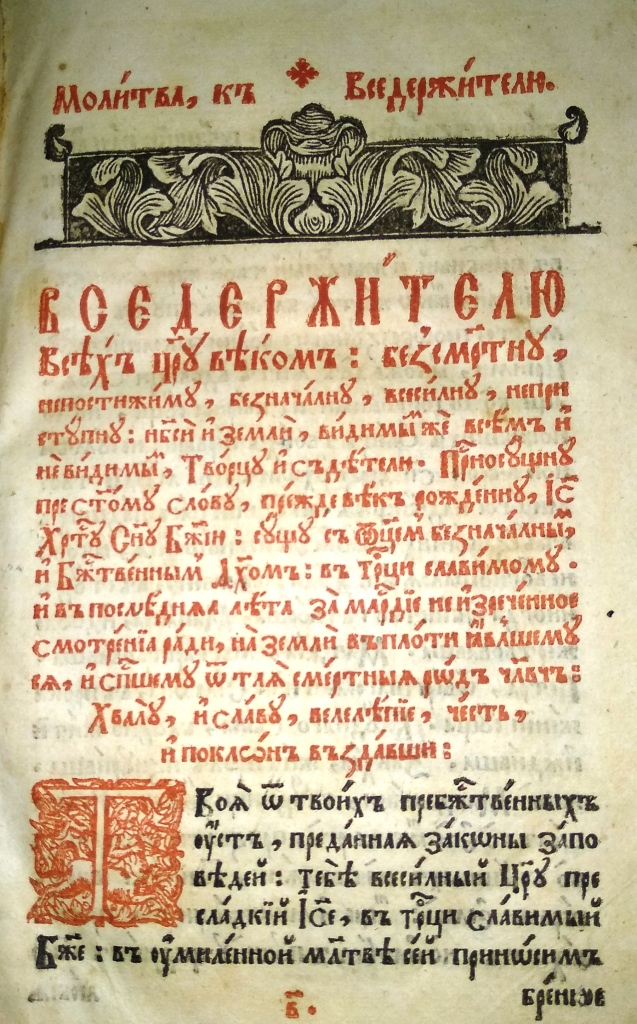 Моли́тва, къ Вседержи́телю.
ВСЕДЕРЖИ́ТЕЛЮ
Всѣ́хъ цр҃ю вѣкомъ : безсме́ртну,
непостижи́му, безнача́лну, всеси́лну, непри
сту́пну : нб҃си и҆ землѝ, ви́димы́м же всѣ́мъ и҆
неви́димы́м, Творцу̀ и҆ съдѣ́телю. Прⷭ҇носу́щну
прест҃о́му сло́ву, пре́жде вѣ́къ рожде́нну, І҆с҃
Хрⷭ҇ту̀ Сн҃у Бж҃їю : су́щу съ ѿц҃ем безнача́лным,
и҆ Бжⷭ҇твенным Дх҃омъ : въ трⷪ҇ци слави́мому.
и҆ въ послѣ́дняѧ лѣ́та за млрⷭ҇дїе неи҆зрече́нное
смотре́нїѧ ра́ди, на землѝ въ пло́ти ꙗ҆́вльшему
сѧ, и҆ сп҃шему ѿ тлѝ сме́ртныѧ ро́дъ чл҃вчь :
Хвалу̀, и҆ сла́ву, велелѣ́пїе, че́сть,
и҆ покло́нъ възда́вши :
ТВоѧ̀ ѿ твои́хъ пребжⷭ҇твенныхъ
ᲂу҆́стъ, преда́нная зако́ны за́по
вѣдей : тебѣ̀ всеси́лный Цр҃ю пре
сла́дкїй І҆с҃е, въ трⷪ҇ци слави́мый
Бж҃е : въ ᲂу҆миле́нной мл҃твѣ се́й прино́симъ
в҃.
бре́нїѡв